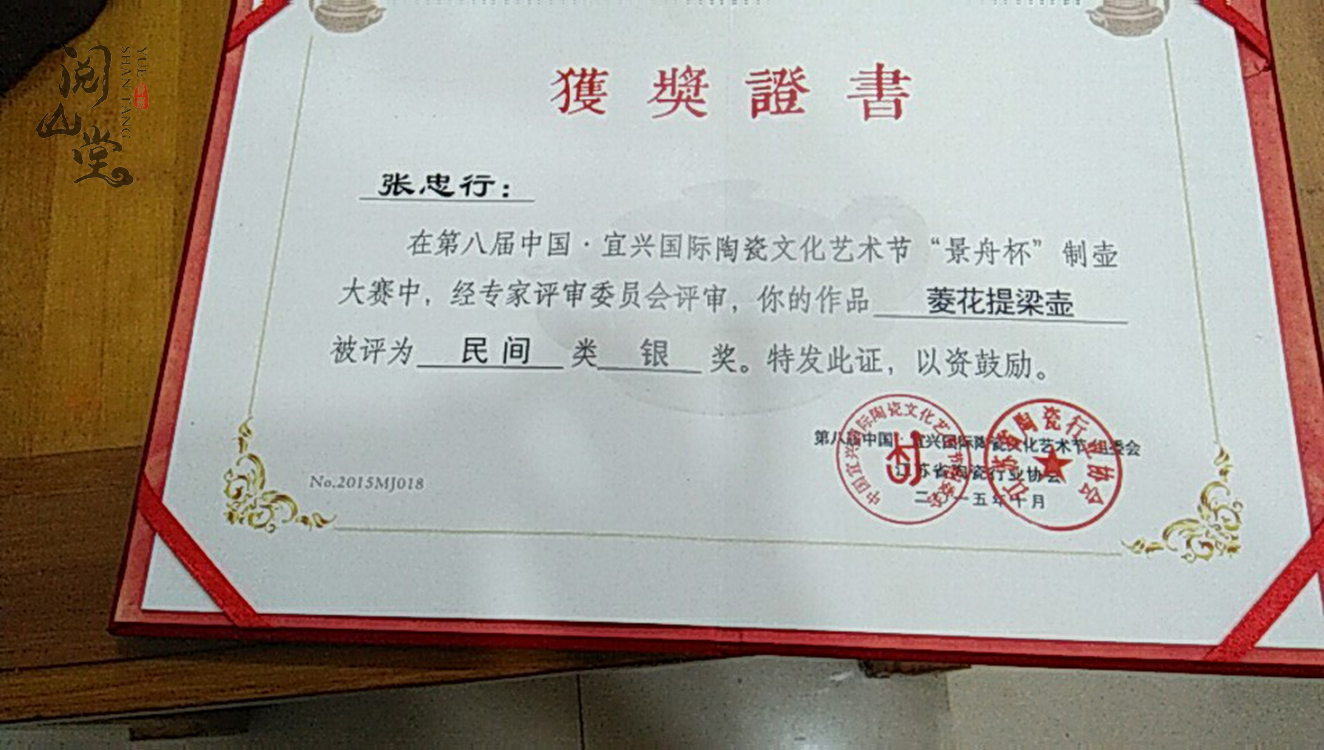 阅山堂
YUE SHAN TANG
獲獎證書
张忠行：
在第八届中国·宜兴国际陶瓷文化艺术节“景舟杯”制壶
大赛中，经专家评审委员会评审，你的作品 菱花提梁壶
被评为 民间 类 银 奖。特发此证，以资鼓励。
第八届中国·宜兴国际陶瓷文化艺术节组委会
江苏省陶瓷行业协会
二〇一五年十月
No.2015MJ018